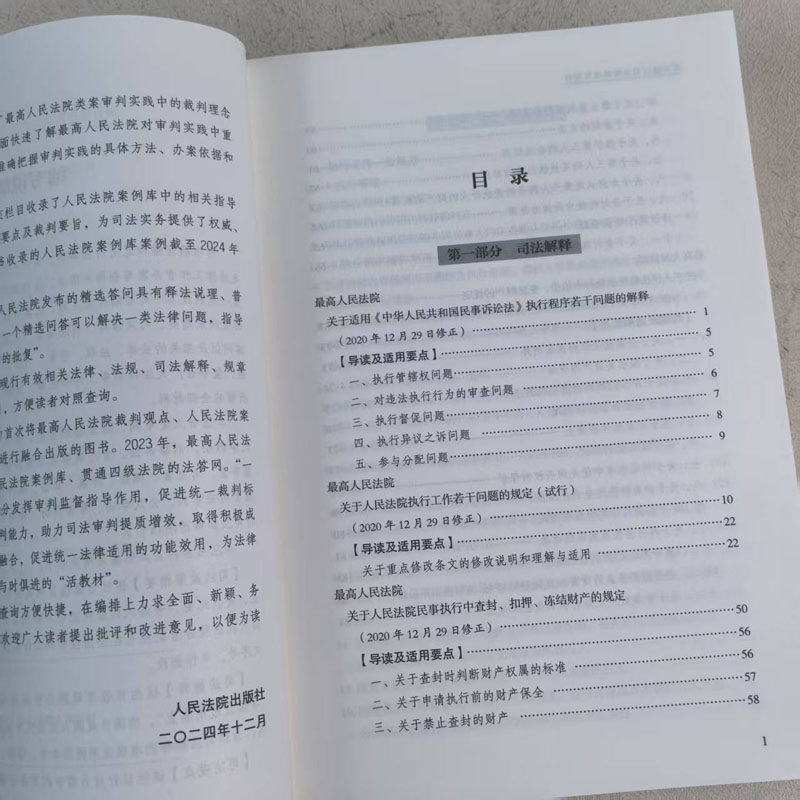 最高人民法院类案审判实践中的裁判理念
面快速了解最高人民法院对审判实践中重
准确把握审判实践的具体方法、办案依据和
栏目收录了人民法院案例库中的相关指导
要点及裁判要旨，为司法实务提供了权威、
收录的人民法院案例库案例截至2024年
人民法院发布的精选答问具有释法说理、普
一个精选问答可以解决一类法律问题，指导
的批复”。
现行有效相关法律、法规、司法解释、规章
，方便读者对照查询。
首次将最高人民法院裁判观点、人民法院案
进行融合出版的图书。2023年，最高人民法
民法院案例库、贯通四级法院的法答网。“一
分发挥审判监督指导作用，促进统一裁判标
判能力，助力司法审判提质增效，取得积极成
融合，促进统一法律适用的功能效用，为法律
与时俱进的“活教材”。
查询方便快捷，在编排上力求全面、新颖、务
欢迎广大读者提出批评和改进意见，以便为读
人民法院出版社
二〇二四年十二月
目 录
第一部分 司法解释
最高人民法院
关于适用《中华人民共和国民事诉讼法》执行程序若干问题的解释
（2020年12月29日修正） 1
【导读及适用要点】 5
一、执行管辖权问题 5
二、对违法执行行为的审查问题 6
三、执行督促问题 7
四、执行异议之诉问题 8
五、参与分配问题 9
最高人民法院
关于人民法院执行工作若干问题的规定（试行）
（2020年12月29日修正） 10
【导读及适用要点】 22
关于重点修改条文的修改说明和理解与适用 22
最高人民法院
关于人民法院民事执行中查封、扣押、冻结财产的规定
（2020年12月29日修正） 50
【导读及适用要点】 56
一、关于查封时判断财产权属的标准 56
二、关于申请执行前的财产保全 57
三、关于禁止查封的财产 58
1